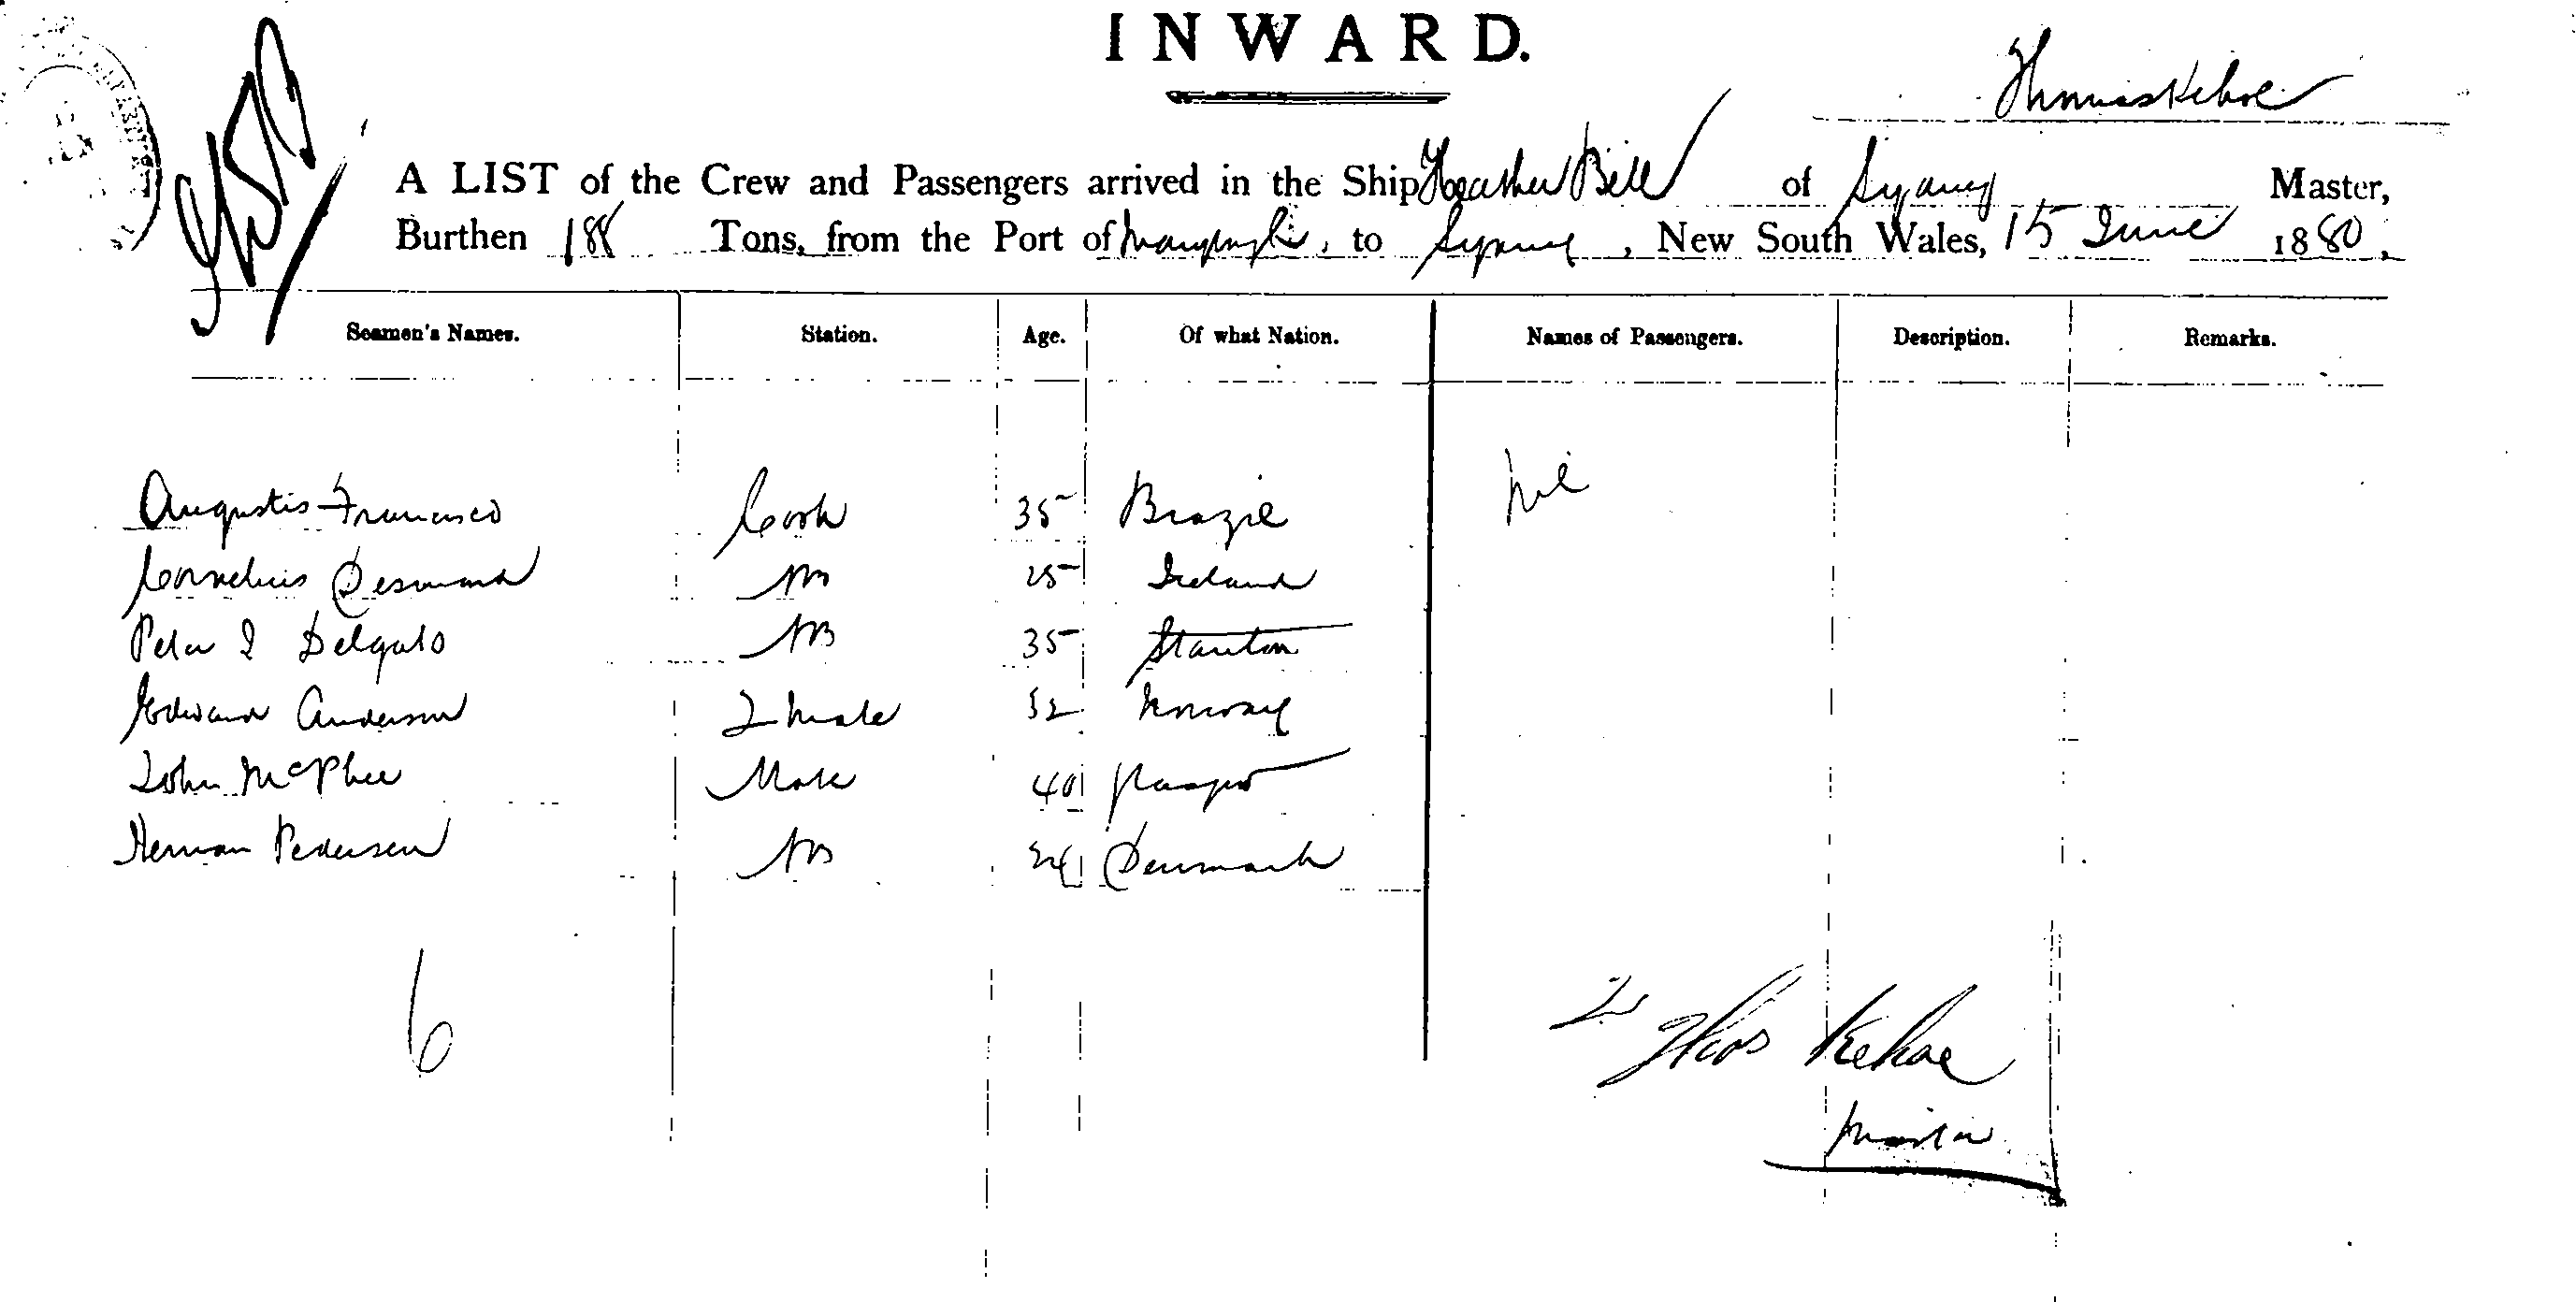 INWARD.
Thomas Kehoe
A LIST of the Crew and Passengers arrived in the Ship Heather Bell of Sydney Master,
Burthen 188 Tons, from the Port of to Sydney, New South Wales, 15 June 1880,
Seamen's Names. Station. Age. Of what Nation. Names of Passengers. Description. Remarks.
Augustis Francisco Cook 35 Brazil Nil
Cornelius Desmond AB 25 Ireland
Peter J Delgato AB 35
Edward Anderson 2 Mate 32 Norway
John McPhee Mate 40 Glasgow
Herman Pedersen AB 24 Denmark
6
Thos Kehoe
Master